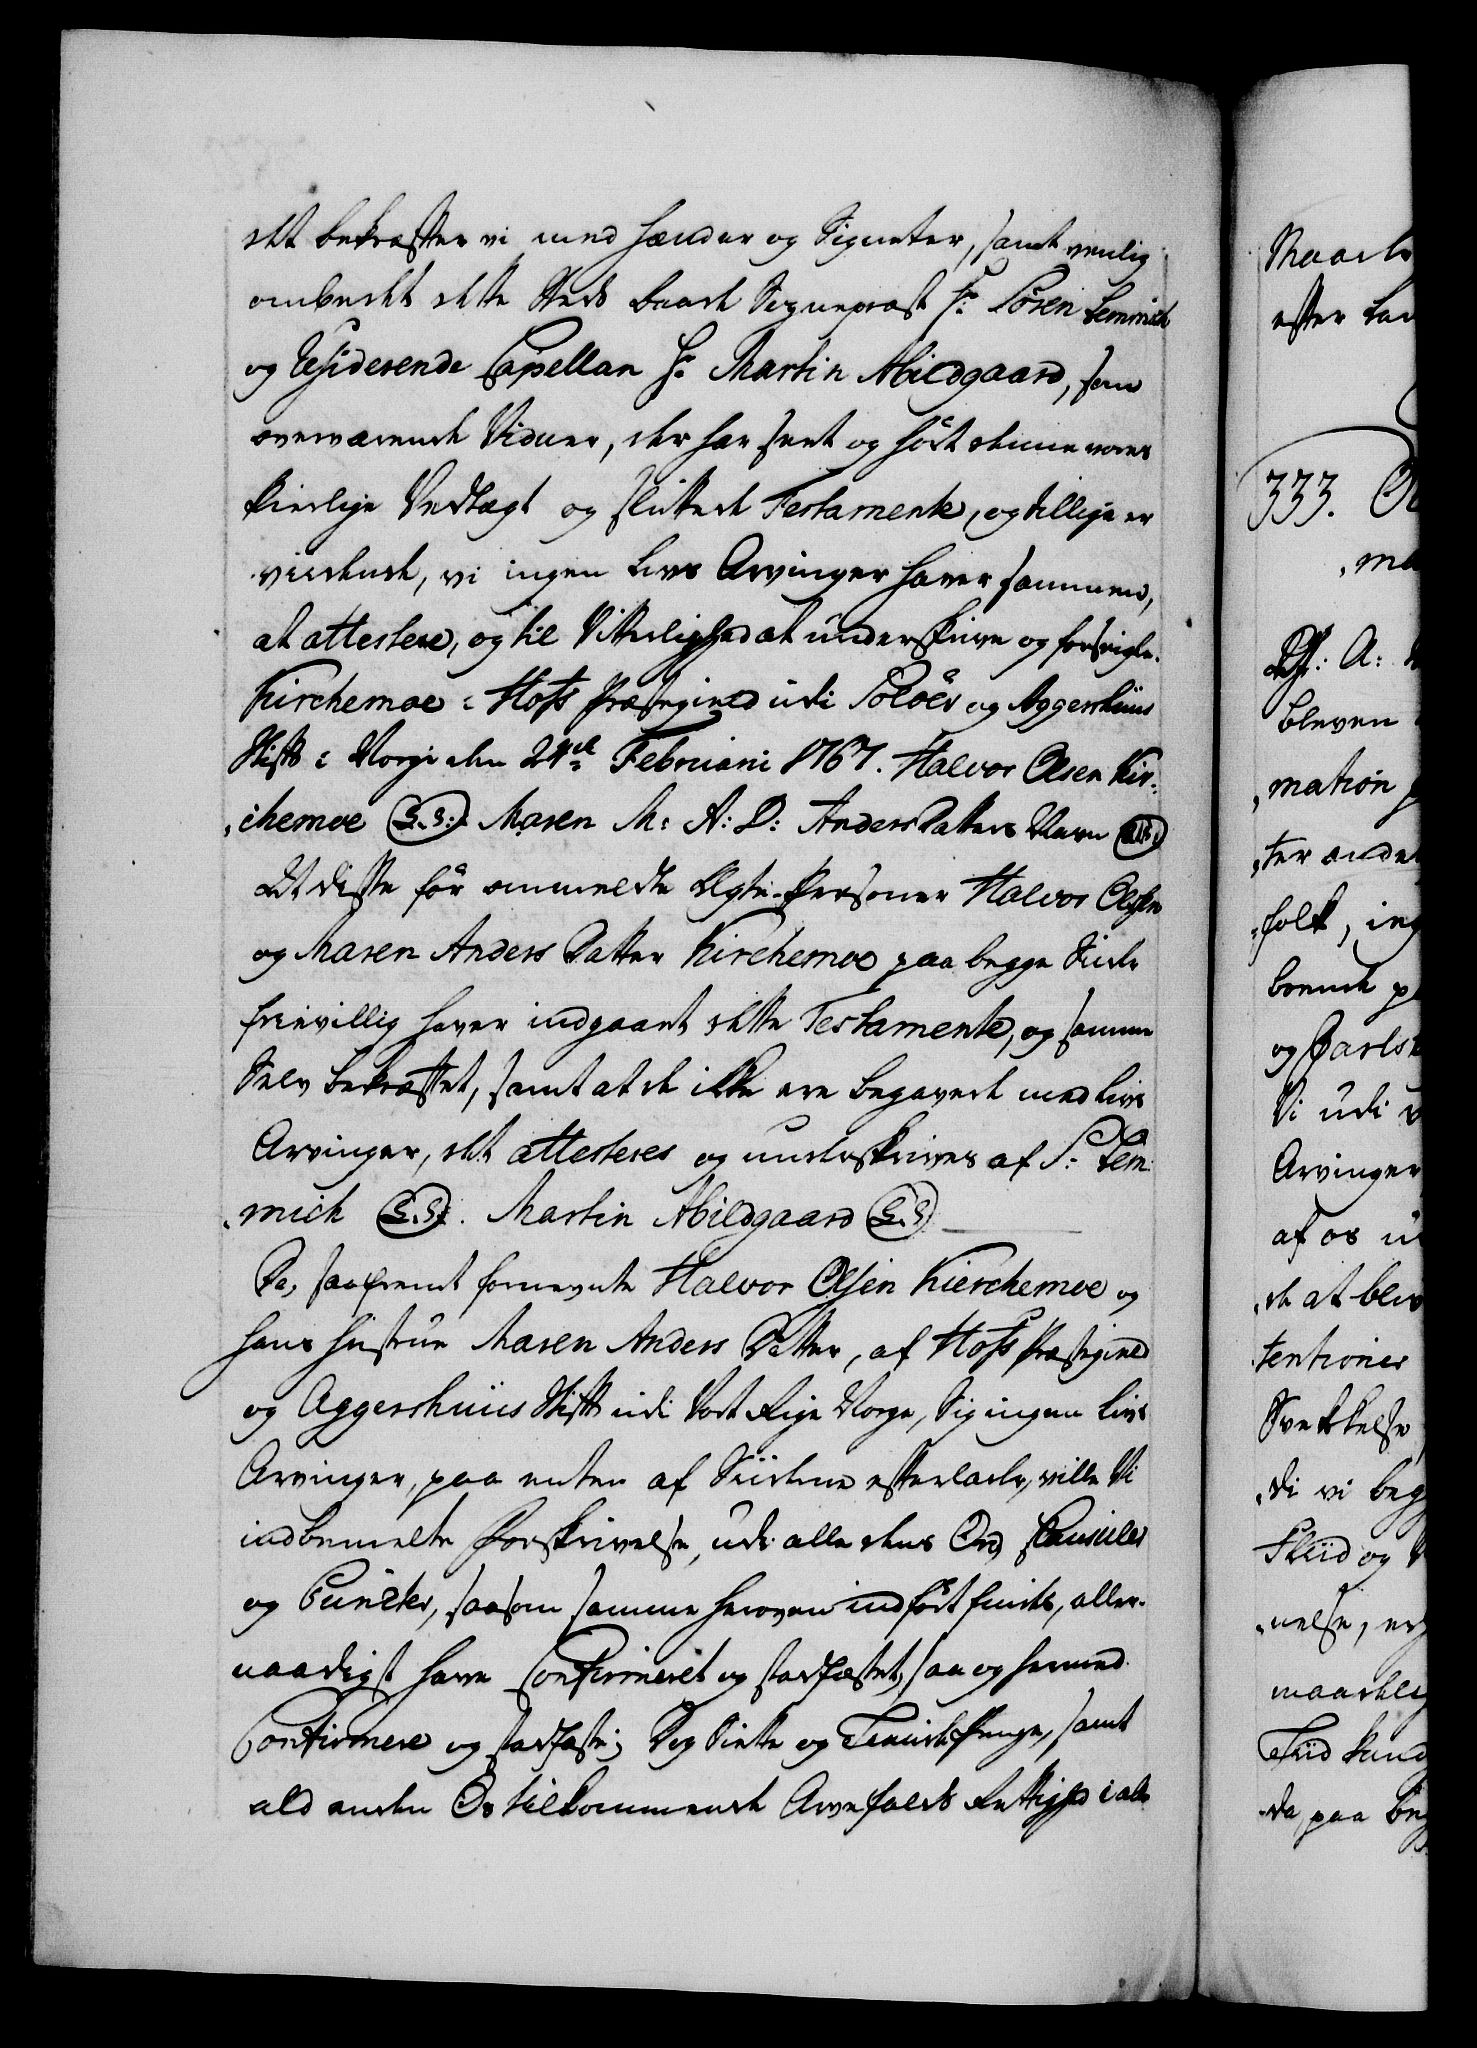 det bekræfter vi med Hænder og Signeter, samt venlig
ombedet dette Steds baade Sognepræst Hr: Sören Lemmich
og Residerende Capellan Hr: Martin Abildgaard, som
overværende Vidner, der har seet og hört denne vores
kierlige Vedtægt og sluttede Testamente, og tillige er
vidende, vi ingen Livs Arvinger haver sammen,
at attestere, og til Vitterlighed at underskrive og forseigle.
Kirchemoe i Hofs Præstegield udi Solöer og Aggershuus
Stift i Norge den 24de Februarii 1767. Halvor Olsen Kir-
chemoe (L.S.) Maren M: A: D: Anders Datters Navn (L.S.)
At disse för anmeldte Ægte-Persohner Halvor Olsen
og Maren Anders Datter Kirchemoe paa begge Siider
frievillig haver indgaaet dette Testamente, og samme
Selv bekræftet, samt at de ikke ere begavede med Livs
Arvinger, det attesteres og underskrives af S: Lem-
mich (L.S.). Martin Abildgaard (L.S.)
Da, saafremt fornevnte Halvor Olsen Kierchemoe og
hans Hustrue Maren Anders Datter, af Hofs Præstegield
og Aggershuus Stift udi Vort Rige Norge, Sig ingen Livs
Arvinger, paa enten af Siiderne efterlade, ville Vi
indbemelte Forskrivelse, udi alle dens Ord, Clausuler
og Puncter, saasom samme heroven indfört findes, aller-
naadigst have Confirmeret og stadfæstet, saa og hermed
Confirmere og stadfæste; Dog Siette og Tiende Penge, samt
ald anden Os tilkommende Arvefalds Rettighed i alle
Maade
efter
333.
bleven
mation
ter ande
folk, ing
boende p
og Jarls
Vi udi
Arvinger
af os
de at bliv
tentioner
Svekkelse
di vi beg
Fliid og
nelse, er
maadelig
Fliid kund
da, paa beg